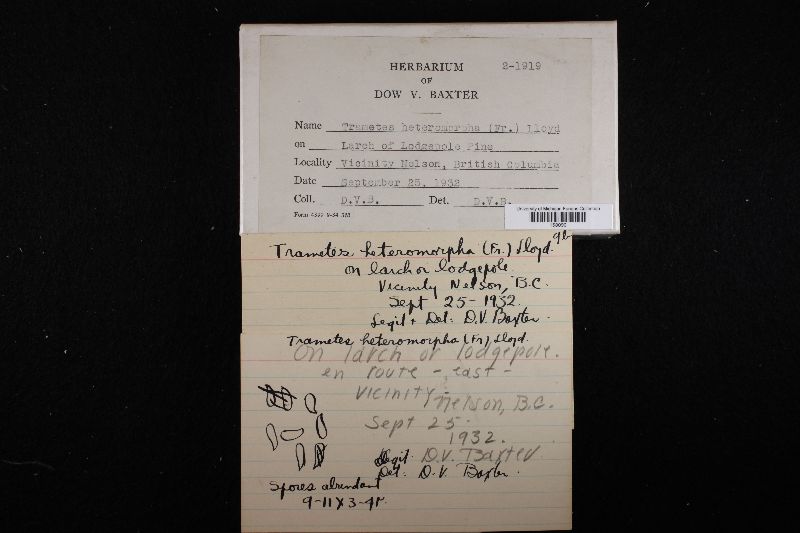 HERBARIUM 2-1919
OF
DOW V. BAXTER
Name Trametes heteromorpha (Fr.) Lloyd
on Larch of Lodgepole Pine
Locality Vicinity Nelson, British Columbia
Date September 25, 1932
Coll. D.V.B. Det. D.V.B.
University of Michigan Fungus Collection
Trametes heteromorpha (Fr.) Lloyd.
on larch or lodgepole.
Vicinity Nelson, B.C.
Sept 25-1932.
Legit + Det. D.V. Baxter.
Trametes heteromorpha (Fr.) Lloyd.
On larch or lodgepole.
en route - east -
vicinity
Nelson, B.C.
Sept 25-
1932.
Legit. D.V. Baxter
Det. D.V. Baxter.
Spores abundant
9-11 X 3-4µ.